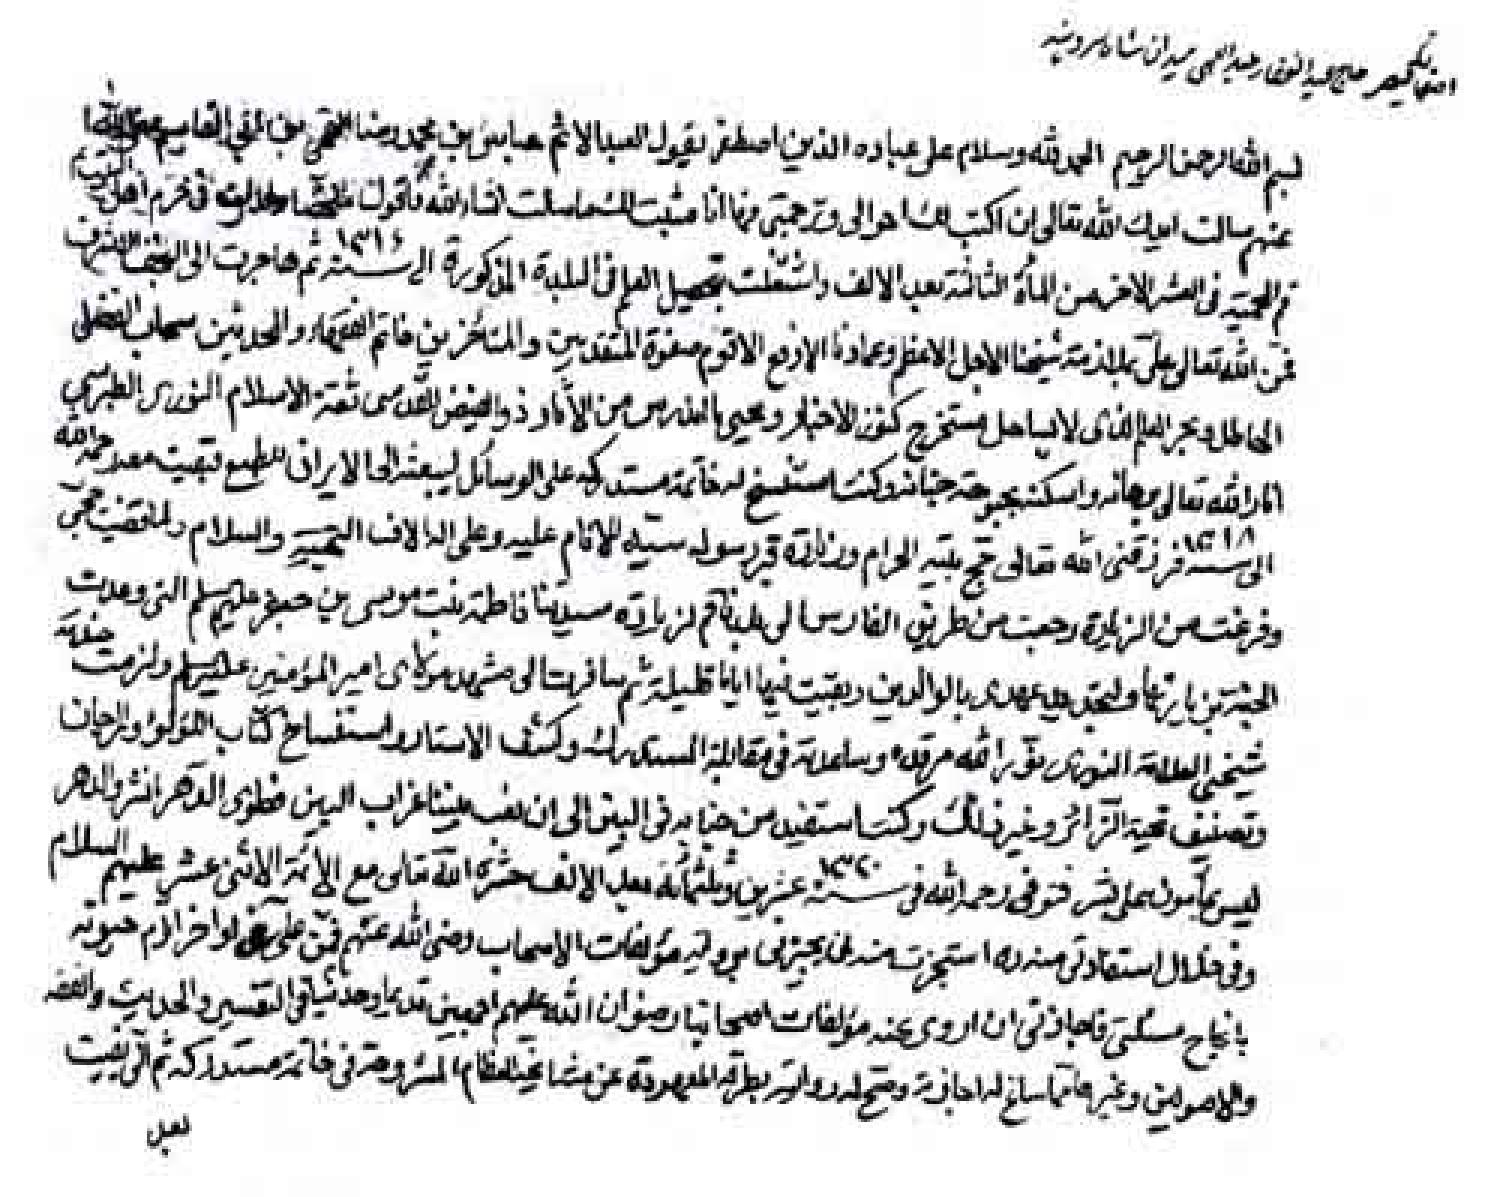 بسم الله الرحمن الرحيم الحمد لله وسلام على عباده الذين اصطفى يقول العبد الاثم عباس بن محمد رضا القمي بن ابي القاسم عفى الله
عنهم سالت ايدك الله تعالى ان اكتب لك احوالى وترجمتى فها انا مثبت لك ما سالت انشاء الله فاقول في حرم اهل البيت
قم المحمية فى العشر الاخر من المأة الثالثة بعد الالف واشتغلت بتحصيل العلم فى البلدة المذكورة الى سنة ١٣١٦ ثم هاجرت الى النجف الاشرف
فمن الله تعالى علىّ بملازمة شيخنا الاجل الاعظم وعمادنا الارفع الاقوم صفوة المتقدمين والمتأخرين خاتم الفقهاء والمحدثين سحاب الفضل
الهاطل وبحر العلم الذى لا يساحل مستخرج كنوز الاخبار ومحيي ما اندرس من الآثار ذو الفيض القدسى ثقة الاسلام النورى الطبرسي
انار الله تعالى برهانه واسكنه بحبوحة جنانه وكنت استنسخ له خاتمة مستدركه على الوسائل ليبعثه الى الايران للطبع فبقيت معه رحمه الله
الى سنة ١٣١٨ فرزقنى الله تعالى حج بيته الحرام وزيارة قبر رسوله سيد الانام عليه وعلى اله الاف التحية والسلام ولما قضيت حجى
وفرغت من الزيارة رجعت من طريق الفارس الى بلدنا قم لزيارة سيدتنا فاطمة بنت موسى بن جعفر عليهم السلم التى وعدت
الجنة بزيارتها وليتجدد عهدى بالوالدين وبقيت فيها اياما قليلة ثم سافرت الى مشهد مولاى امير المؤمنين عليه السلم ولزمت خدمة
شيخى العلامة النورى نوّر الله مرقده وساعدته فى مقابلة المستدرك وكشف الاستار واستنساخ كتاب اللؤلؤ والمرجان
وتصنيف تحية الزائر وغير ذلك وكنت استفيد من جنابه فى البين الى ان نعب بيننا غراب البين فطوى الدهر ما نشر والدهر
ليس بمأمون على بشر فتوفى رحمه الله فى سنة ١٣٢٠ عشرين وثلثمأة بعد الالف حشره الله تعالى مع الأئمة الاثنى عشر عليهم السلام
وفى خلال استفادتى منه ره استجزت منه لان يجيزنى برواية مؤلفات الاصحاب رضى الله عنهم فمن علىّ فى اواخر ايام حيوته
بانجاح مسئلتى فاجازنى ان اروى عنه مؤلفات اصحابنا رضوان الله عليهم اجمعين قديما وحديثا فى التفسير والحديث والفقه
والاصولين وغيرها مما ساغ له اجازته وصح له روايته بطرقه المعهودة عن مشايخه العظام المشروحة فى خاتمة مستدركه ثم انى بقيت
بعد